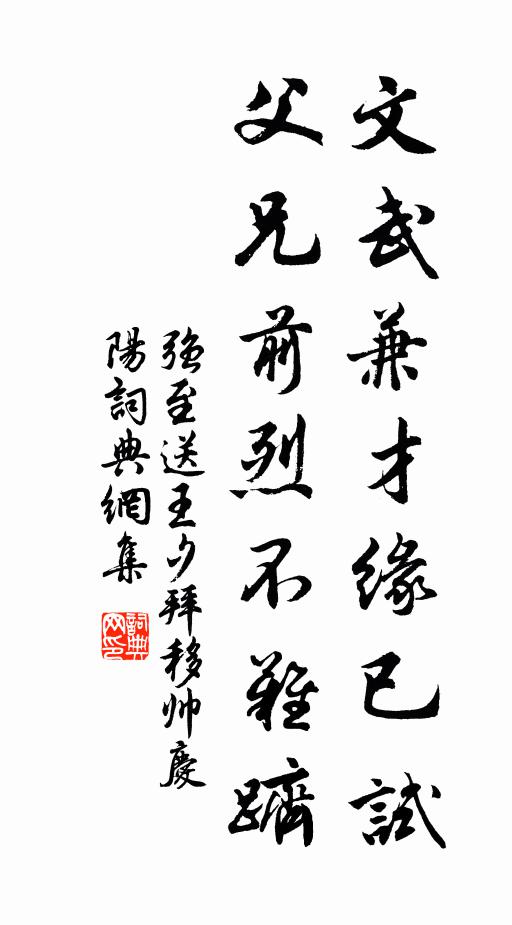 文武兼才緣已試
父兄前烈不難躋
強至送王少拜移帅慶
陽詞典網集
詞典
网印